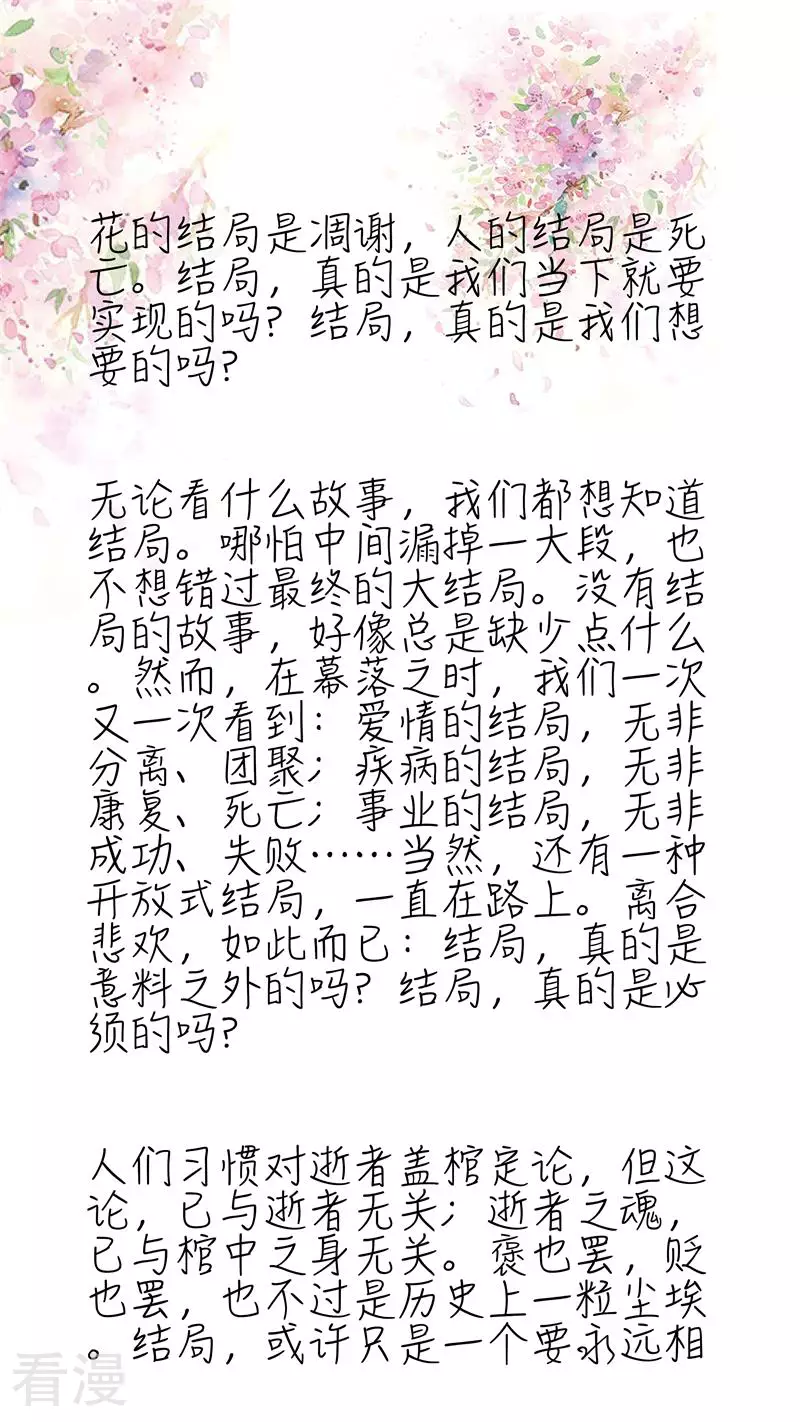 花的结局是凋谢，人的结局是死
亡。结局，真的是我们当下就要
实现的吗？结局，真的是我们想
要的吗？
无论看什么故事，我们都想知道
结局。哪怕中间漏掉一大段，也
不想错过最终的大结局。没有结
局的故事，好像总是缺少点什么
。然而，在幕落之时，我们一次
又一次看到：爱情的结局，无非
分离、团聚；疾病的结局，无非
康复、死亡；事业的结局，无非
成功、失败……当然，还有一种
开放式结局，一直在路上。离合
悲欢，如此而已：结局，真的是
意料之外的吗？结局，真的是必
须的吗？
人们习惯对逝者盖棺定论，但这
论，已与逝者无关；逝者之魂，
已与棺中之身无关。褒也罢，贬
也罢，也不过是历史上一粒尘埃
。结局，或许只是一个要永远相
看漫